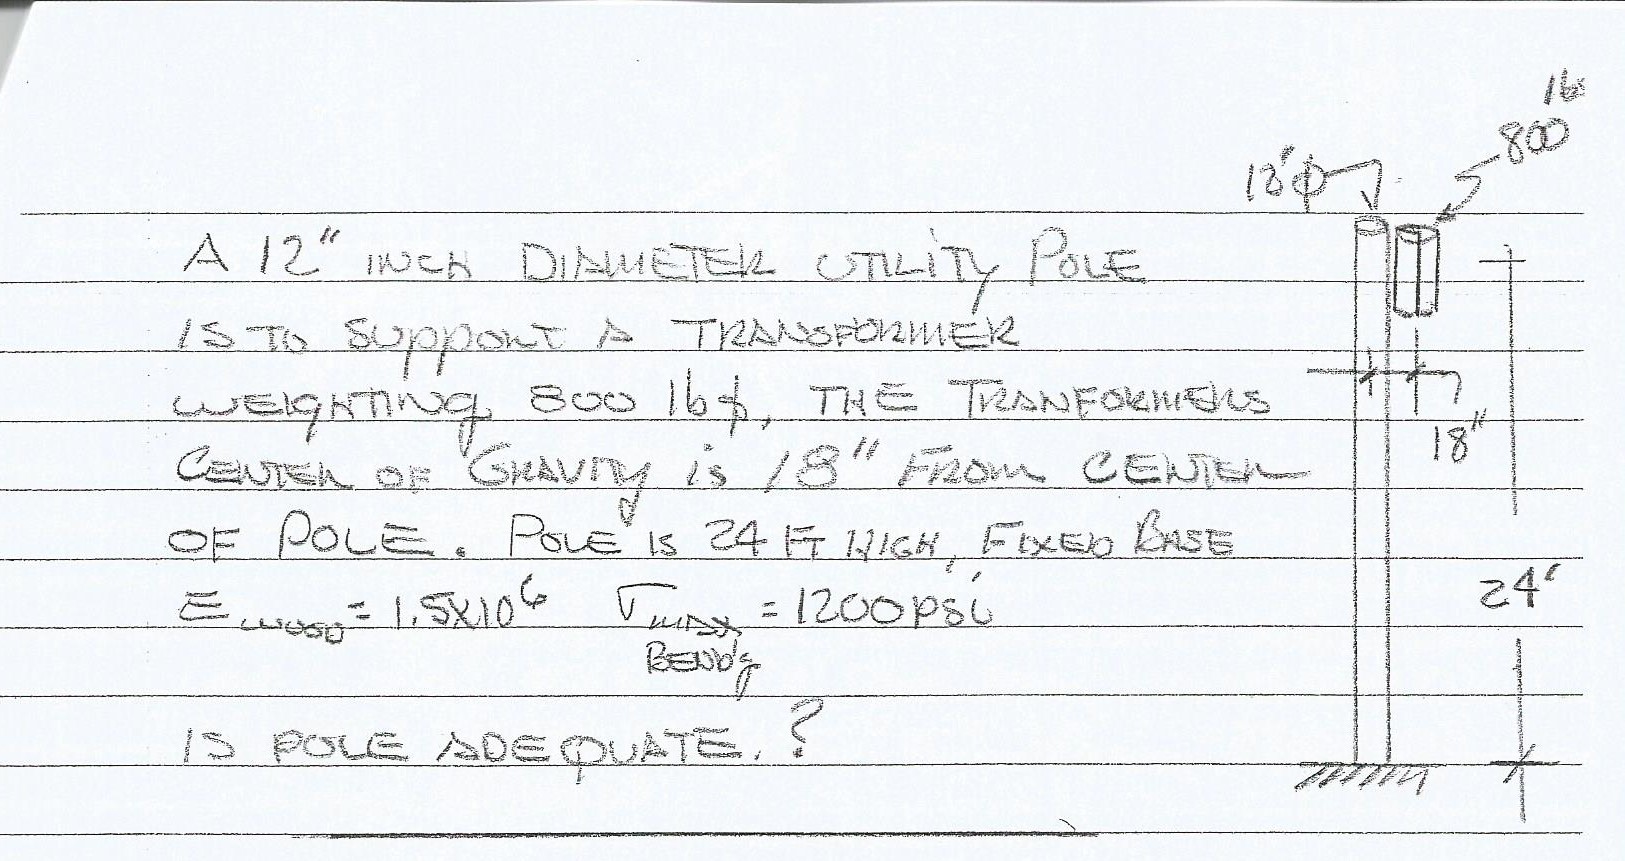 lb
800
18"ϕ
A 12" INCH DIAMETER UTILITY POLE
IS TO SUPPORT A TRANSFORMER
WEIGHTING 800 lbs, THE TRANFORMERS
CENTER OF GRAVITY IS 18" FROM CENTER
18"
OF POLE. POLE IS 24 FT HIGH, FIXED BASE
E WOOD = 1.5X10⁶ σ MAX BEND'g = 1200 PSi
24'
IS POLE ADEQUATE.?